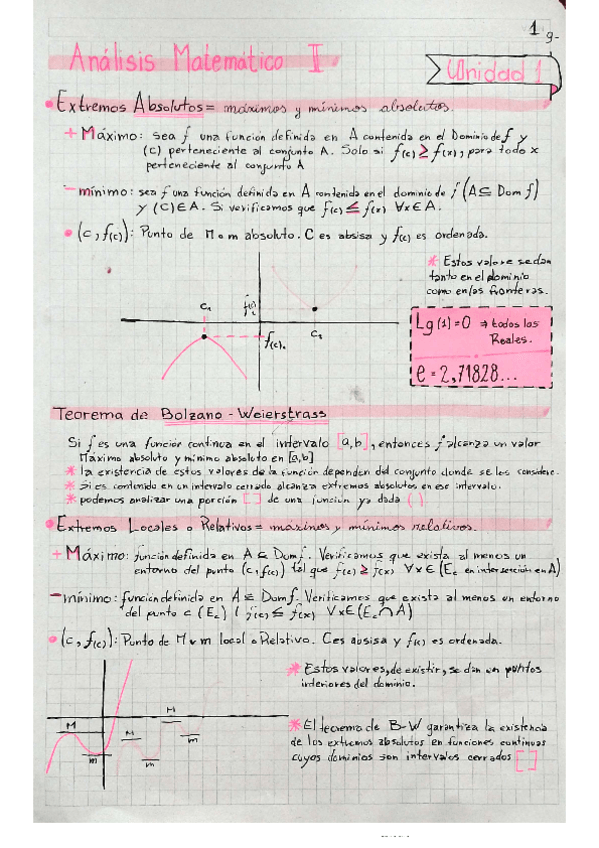 1
g-
Análisis Matemático II
Unidad 1
• Extremos Absolutos = máximos y mínimos absolutos.
+ Máximo: sea f una función definida en A contenida en el Dominio de f y
(C) perteneciente al conjunto A. Solo si f(c) ≥ f(x), para todo x
perteneciente al conjunto A
− mínimo: sea f una función definida en A contenida en el dominio de f (A ⊆ Dom f)
y (C) ∈ A. Si verificamos que f(c) ≤ f(x) ∀x ∈ A.
• (c, f(c)): Punto de M o m absoluto. C es absisa y f(c) es ordenada.
* Estos valore se dan
tanto en el dominio
como en las fronteras.
C₁
f(c)
C₂
f(c).
Lg(1)=0 ⇒ todos los
Reales.
e = 2,71828...
Teorema de Bolzano - Weierstrass
Si f es una función continua en el intervalo [a,b], entonces f alcanza un valor
Máximo absoluto y mínimo absoluto en [a,b]
* la existencia de estos valores de la función dependen del conjunto donde se los considere.
* si es contenido en un intervalo cerrado alcanza extremos absolutos en ese intervalo.
* podemos analizar una porción [ ] de una función ya dada ( )
• Extremos Locales o Relativos = máximos y mínimos relativos.
+ Máximo: función definida en A ⊆ Dom f. Verificamos que exista al menos un
entorno del punto (c, f(c)) tal que f(c) ≥ f(x) ∀x ∈ (Ec en intersección en A)
− mínimo: función definida en A ⊆ Dom f. Verificamos que exista al menos un entorno
del punto c (Ec) / f(c) ≤ f(x) ∀x ∈ (Ec ∩ A)
• (c, f(c)): Punto de M v m local o Relativo. C es ausisa y f(x) es ordenada.
* Estos valores, de existir, se dan en puntos
interiores del dominio.
M
M
M
m
m
m
* El teorema de B-W garantiza la existencia
de los extremos absolutos en funciones continuas
cuyos dominios son intervalos cerrados [ ]